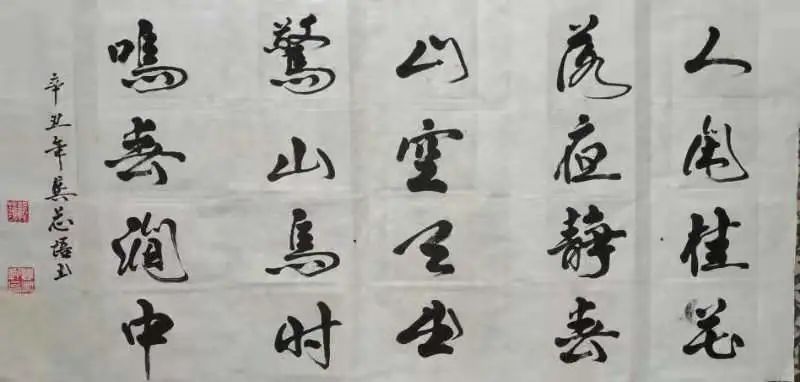 人闲桂花
落夜静春
山空月出
驚山鸟时
鸣春涧中
辛丑年